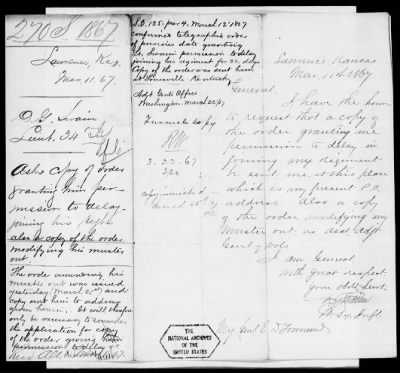 270 S. 1867
Lawrence, Kas.
Mar. 11. 67.
O. G. Swain
Lieut. 34
Asks copy of order
granting him per-
mission to delay
joining his Regt.
also a copy of the order
modifying his muster
out.
The order amending his
muster out was issued
yesterday (March 21st) and
copy sent him to address
given herein. It will therefore
only be necessary to consider
the application for copy
of the order giving him
permission to delay &c
S.O. 125. par 4. March 12" 1867
confirmes telegraphic order
of previous date granting
Lt. Swain permission to delay
joining his regiment for 20 days
Copy of the order was sent him
at Louisville Kentucky
Adjt Genls Office
Washington March 22/67
Copy
RW
3. 22. 67
Lawrence Kansas
Mar. 11th 1867
General,
I have the honor
to request that a copy of
the order granting me
permission to delay in
joining my Regiment
be sent me at this place
which is my present P.O.
address. Also a copy
of the order modifying my
Muster out as
I am General
with great respect
your obdt Servt.
Bvt Maj Genl E. D. Townsend
THE
NATIONAL ARCHIVES
OF THE
UNITED STATES